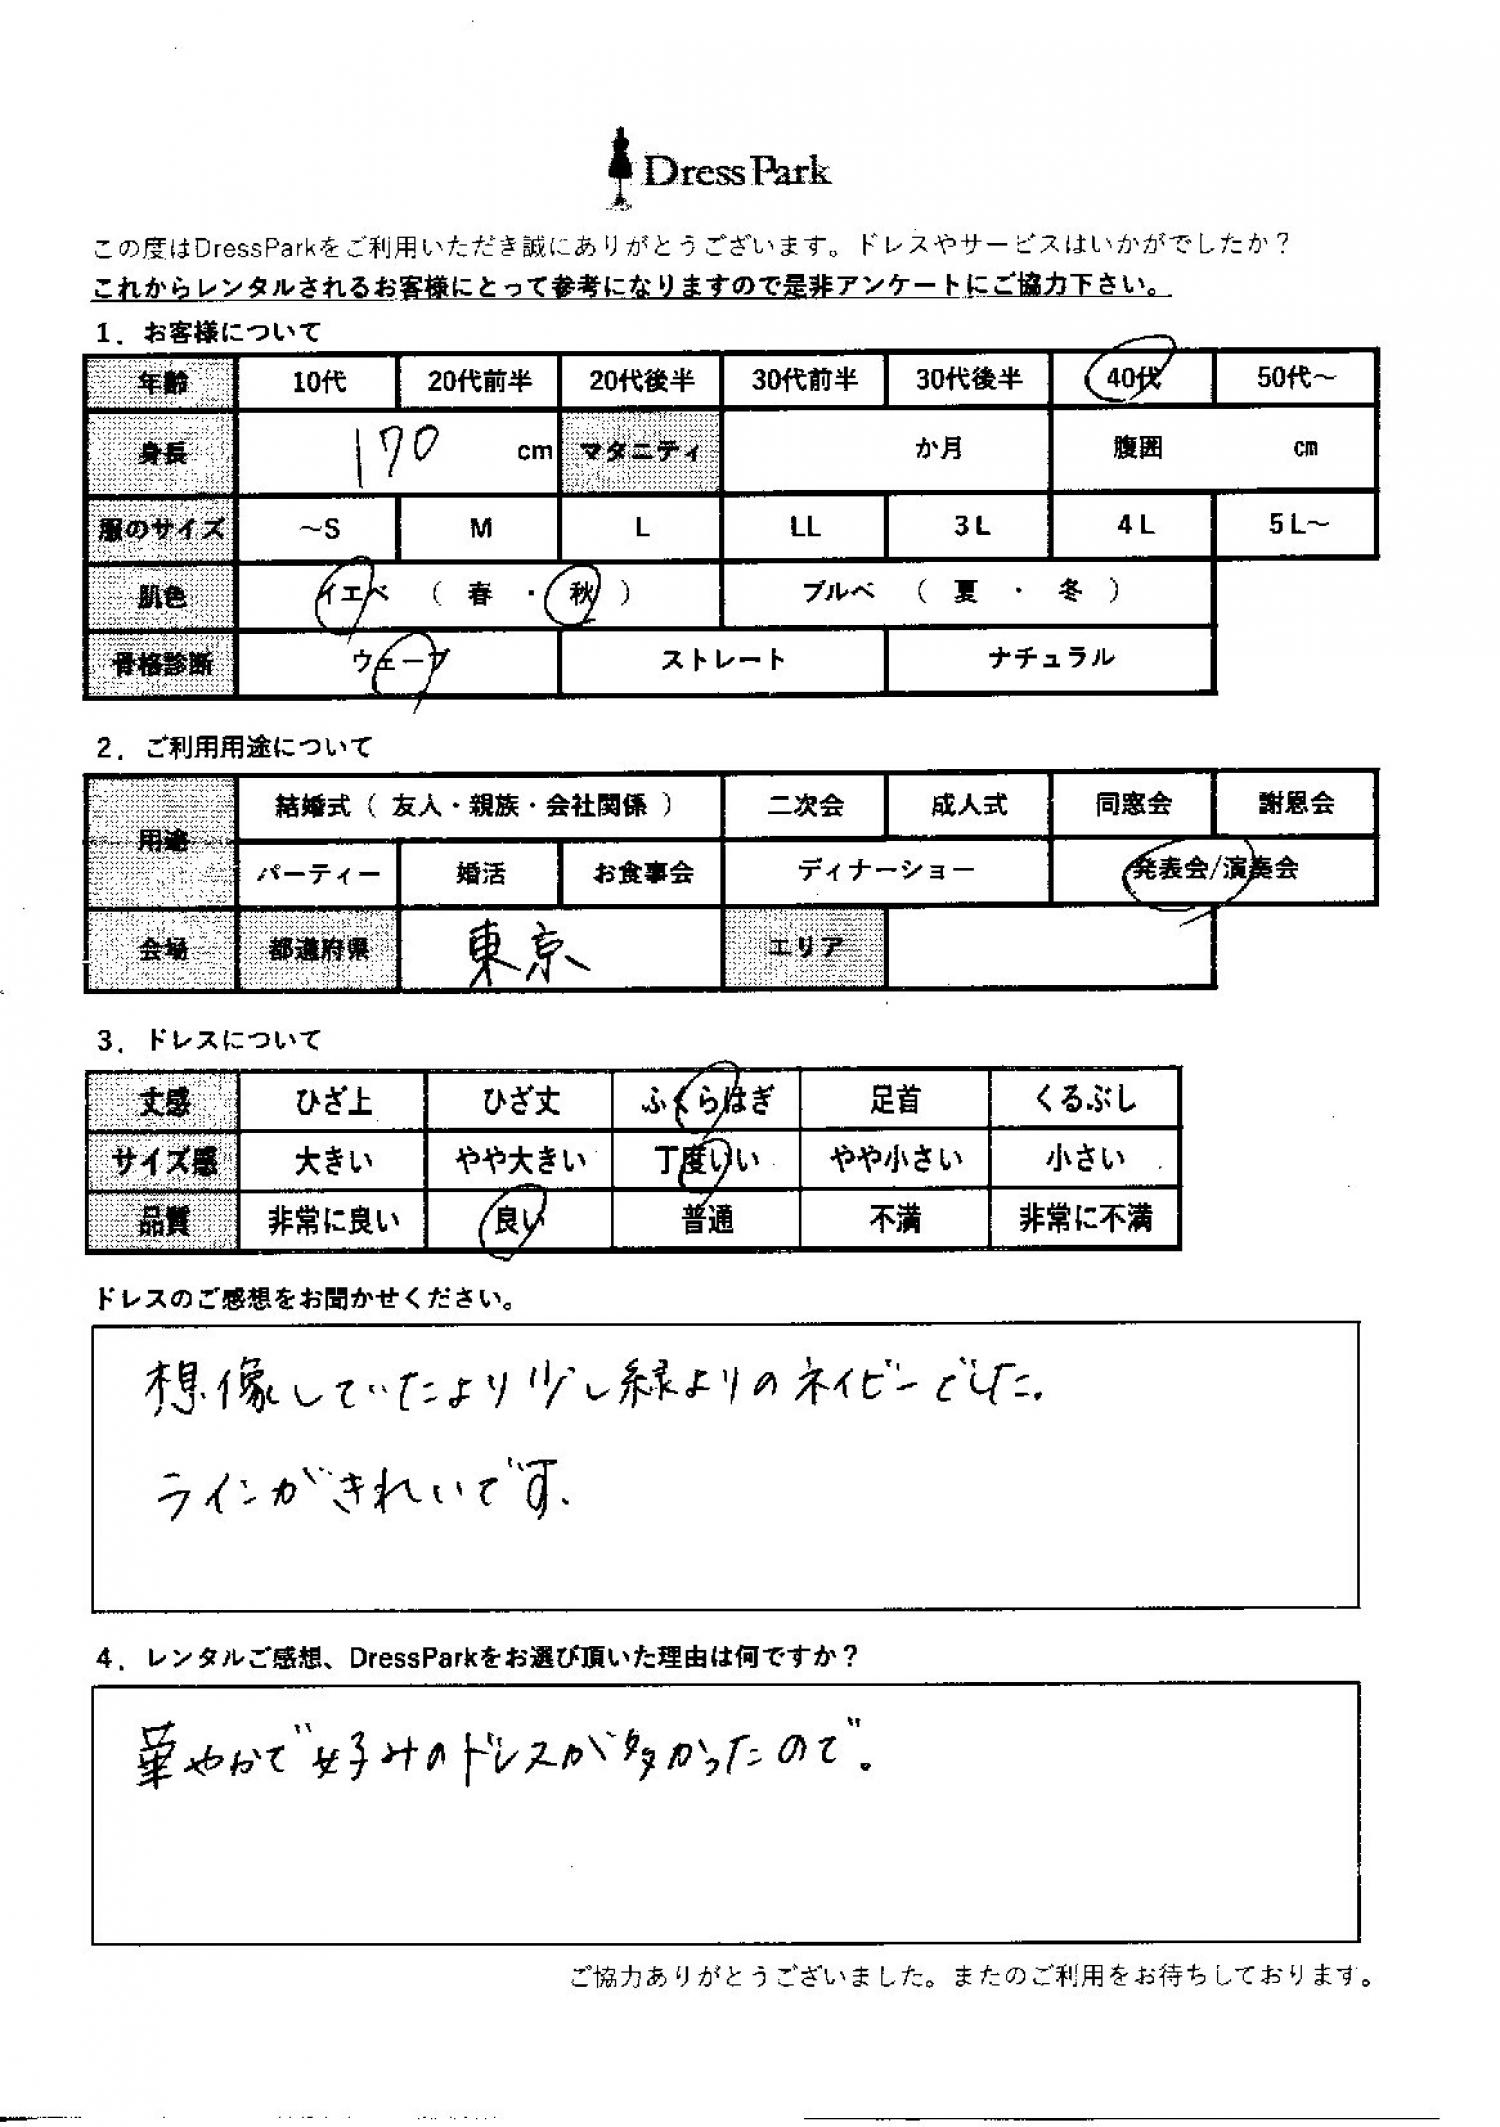 DressPark
この度はDressParkをご利用いただき誠にありがとうございます。ドレスやサービスはいかがでしたか？
これからレンタルされるお客様にとって参考になりますので是非アンケートにご協力下さい。
1．お客様について
年齢 10代 20代前半 20代後半 30代前半 30代後半 40代 50代～
身長 170 cm マタニティ か月 腹囲 cm
服のサイズ ～S M L LL 3L 4L 5L～
肌色 イエベ （ 春 ・ 秋 ） ブルベ （ 夏 ・ 冬 ）
骨格診断 ウェーブ ストレート ナチュラル
2．ご利用用途について
用途 結婚式（ 友人・親族・会社関係 ） 二次会 成人式 同窓会 謝恩会
パーティー 婚活 お食事会 ディナーショー 発表会/演奏会
会場 都道府県 東京 エリア
3．ドレスについて
丈感 ひざ上 ひざ丈 ふくらはぎ 足首 くるぶし
サイズ感 大きい やや大きい 丁度いい やや小さい 小さい
品質 非常に良い 良い 普通 不満 非常に不満
ドレスのご感想をお聞かせください。
想像していたより少し緑よりのネイビーでした。
ラインがきれいです.
4．レンタルご感想、DressParkをお選び頂いた理由は何ですか？
華やかで好みのドレスが多かったので。
ご協力ありがとうございました。またのご利用をお待ちしております。